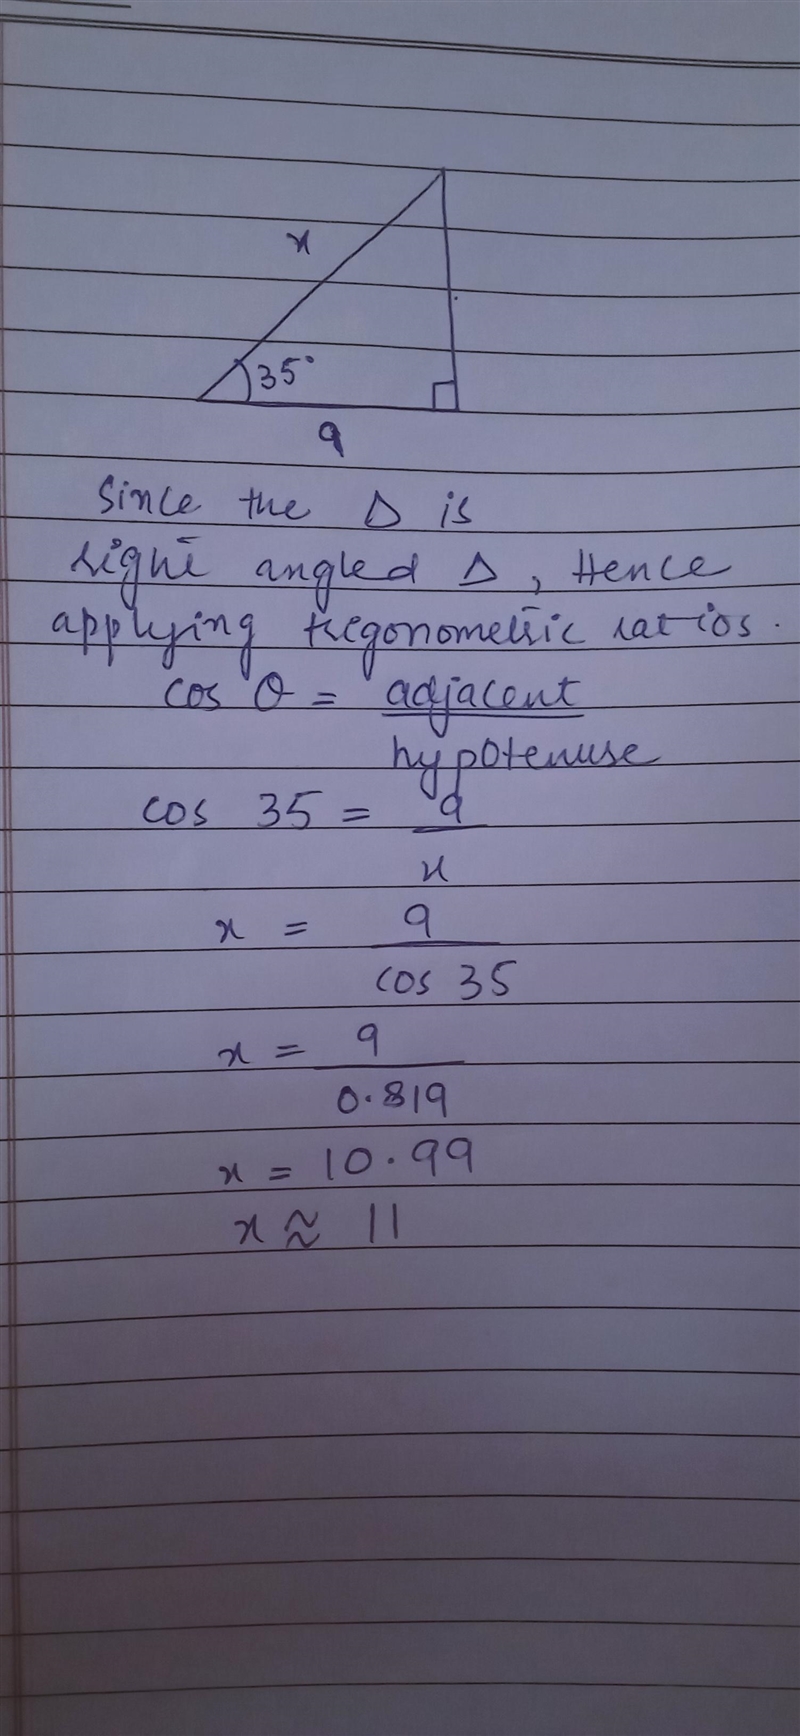 x
35°
9
Since the Δ is
right angled Δ, Hence
applying tregonometric ratios.
cos θ = adjacent
hypotenuse
cos 35 = 9
x
x = 9
cos 35
x = 9
0.819
x = 10.99
x ≈ 11